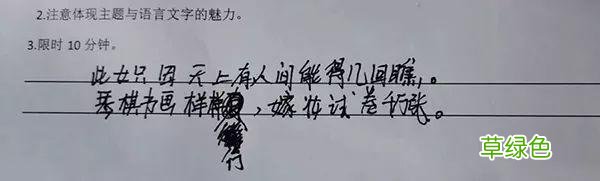 2.注意体现主题与语言文字的魅力。
3.限时 10 分钟。
此女只因天上有人间能得几回瞧。
琴棋书画样样，嫁妆试卷千张。
行
草绿色